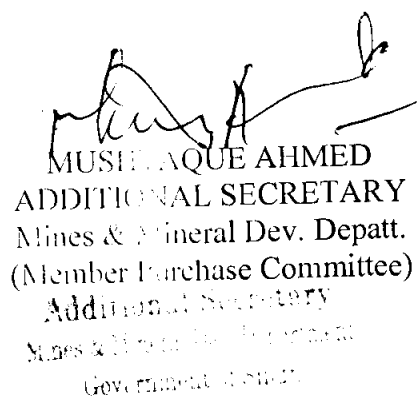 MUSHTAQUE AHMED
ADDITIONAL SECRETARY
Mines & Mineral Dev. Depatt.
(Member Purchase Committee)
Additional Secretary
Mines & Mineral Dev. Department
Government of Sindh